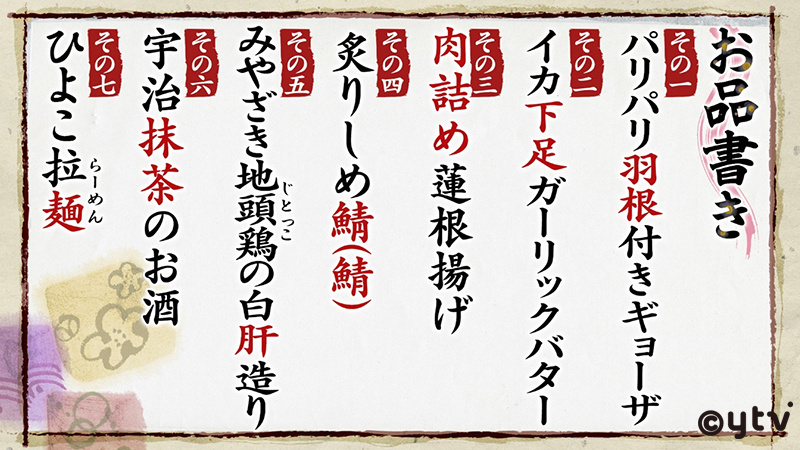 お品書き
その一
パリパリ羽根付きギョーザ
その二
イカ下足ガーリックバター
その三
肉詰め蓮根揚げ
その四
炙りしめ鯖(鯖)
その五
みやざき地頭鶏の白肝造り
じとっこ
その六
宇治抹茶のお酒
その七
ひよこ拉麺
らーめん
©ytv